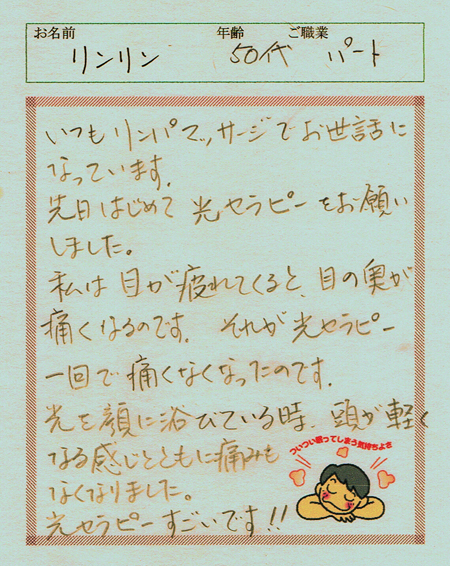 お名前 年齢 ご職業
リンリン 50代 パート
いつもリンパマッサージでお世話に
なっています。
先日はじめて光セラピーをお願い
しました。
私は目が疲れてくると、目の奥が
痛くなるのです。それが光セラピー
一回で痛くなくなったのです。
光を顔に浴びている時、頭が軽く
なる感じとともに痛みも
なくなりました。
光セラピーすごいです!!
ついつい眠ってしまう気持ちよさ